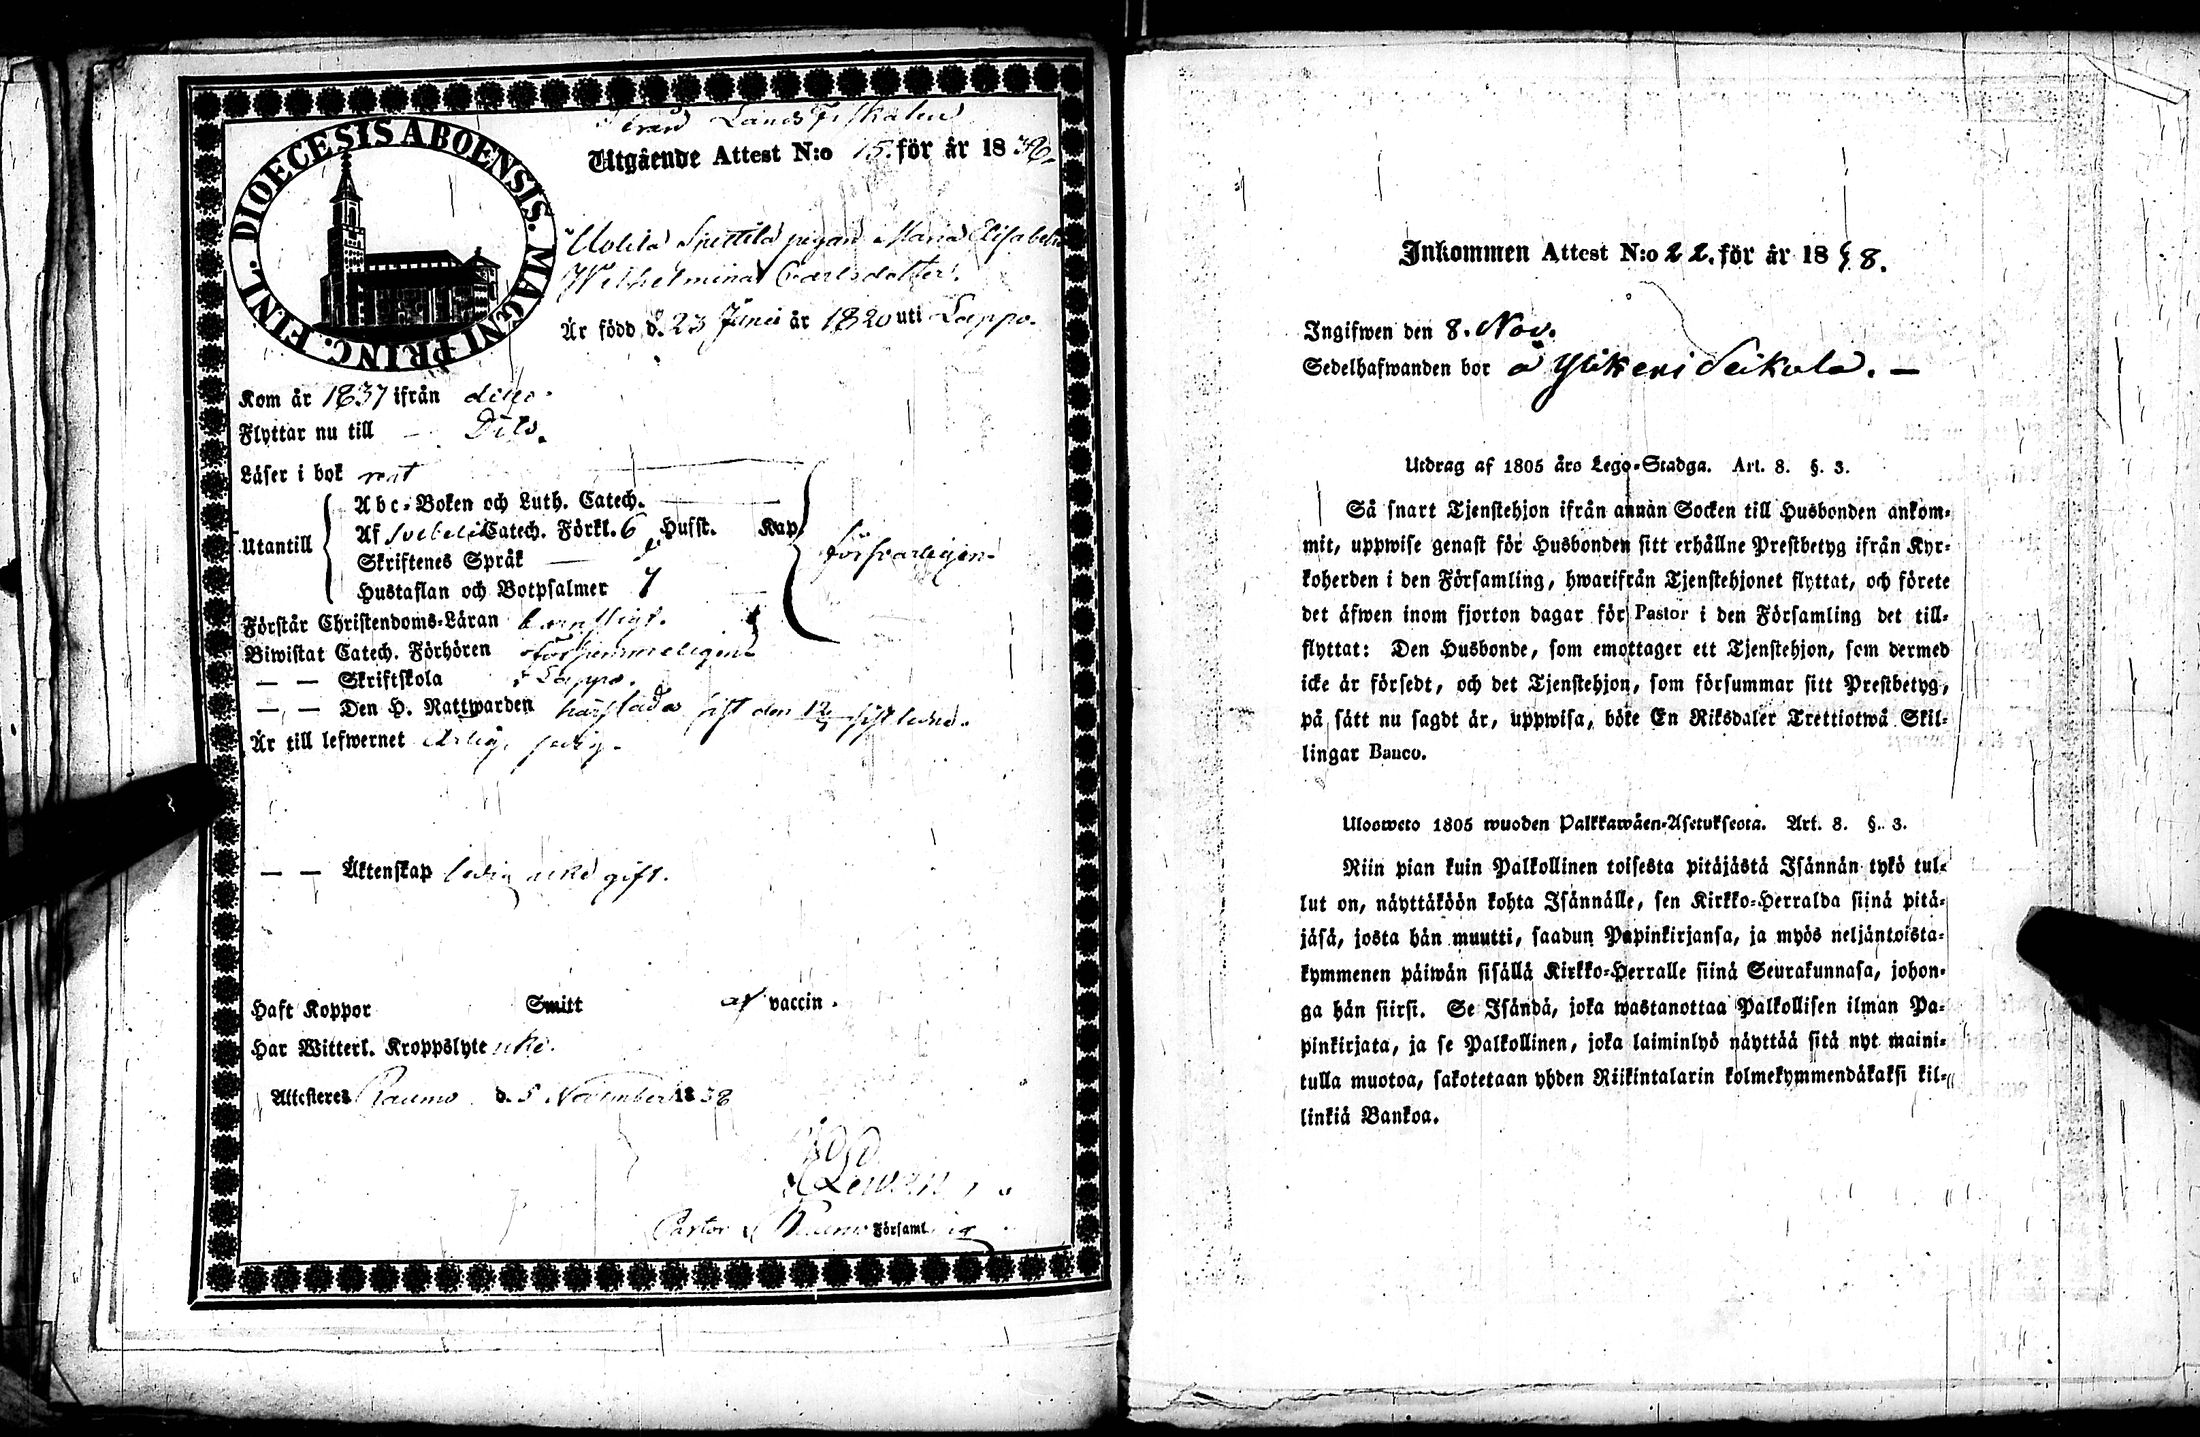 ifrån Lands Fiskalen
Utgående Attest N:o 15. för år 1838.
DIOECESIS ABOENSIS. MAGNI PRINC. FINL.
pigan Maria Elisabeth
Wilhelmina Carlsdotter.
Är född d. 23 Junii år 1820 uti Lappo.
Kom år 1837 ifrån dito.
Flyttar nu till — Dito.
Läser i bok rent
Utantill
Abc-Boken och Luth. Catech.
Af Svebelii Catech. Förkl. 6 Husft. Kap
Skriftenes Språk
Hustaflan och Botpsalmer
försvarligen.
Förstår Christendoms-Läran
Biwistat Catech. Förhören
— — Skriftskola i Lappo.
— — Den H. Nattwarden sist den 12
Är till lefwernet ärlig,
— — Äktenskap ledig gift.
Haft Koppor Smitt af vaccin.
Har Witterl. Kroppslyte icke.
Attesteres Raumo d. 5 November 1838
Pastor i Raumo Församling
Inkommen Attest N:o 22. för år 1838.
Ingifwen den 8. Nov.
Sedelhafwanden bor å Ylikeri Seikola. —
Utdrag af 1805 års Lego-Stadga. Art. 8. §. 3.
Så snart Tjenstehjon ifrån annan Socken till Husbonden ankom-
mit, uppwise genast för Husbonden sitt erhållne Prestbetyg ifrån Kyr-
koherden i den Församling, hwarifrån Tjenstehjonet flyttat, och förete
det äfwen inom fjorton dagar för Pastor i den Församling det till-
flyttat: Den Husbonde, som emottager ett Tjenstehjon, som dermed
icke är försedt, och det Tjenstehjon, som försummar sitt Prestbetyg,
på sätt nu sagdt är, uppwisa, böte En Riksdaler Trettiotwå Skil-
lingar Banco.
Ulosweto 1805 wuoden Palkkawäen-Asetuksesta. Art. 8. §. 3.
Niin pian kuin Palkollinen toisesta pitäjästä Isännän tykö tul-
lut on, näyttäköön kohta Isännälle, sen Kirkko-Herralda siinä pitä-
jäsä, josta hän muutti, saadun Papinkirjansa, ja myös neljäntoista-
kymmenen päiwän sisällä Kirkko-Herralle siinä Seurakunnasa, johon-
ga hän siirsi. Se Isändä, joka wastanottaa Palkollisen ilman Pa-
pinkirjata, ja se Palkollinen, joka laiminlyö näyttää sitä nyt maini-
tulla muotoa, sakotetaan yhden Riikintalarin kolmekymmendäkaksi kil-
linkiä Bankoa.